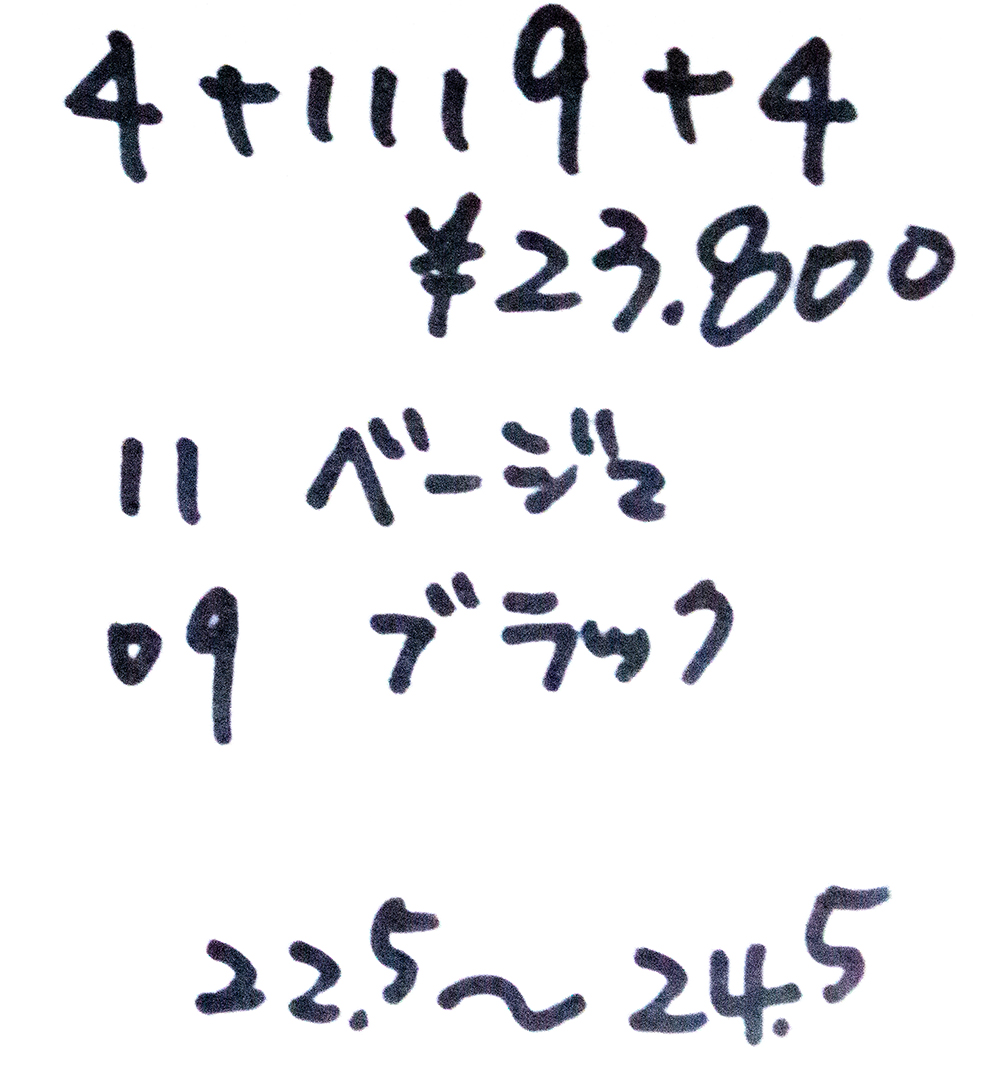 4+1119+4
¥23.800
11 ベージュ
09 ブラック
22.5〜24.5